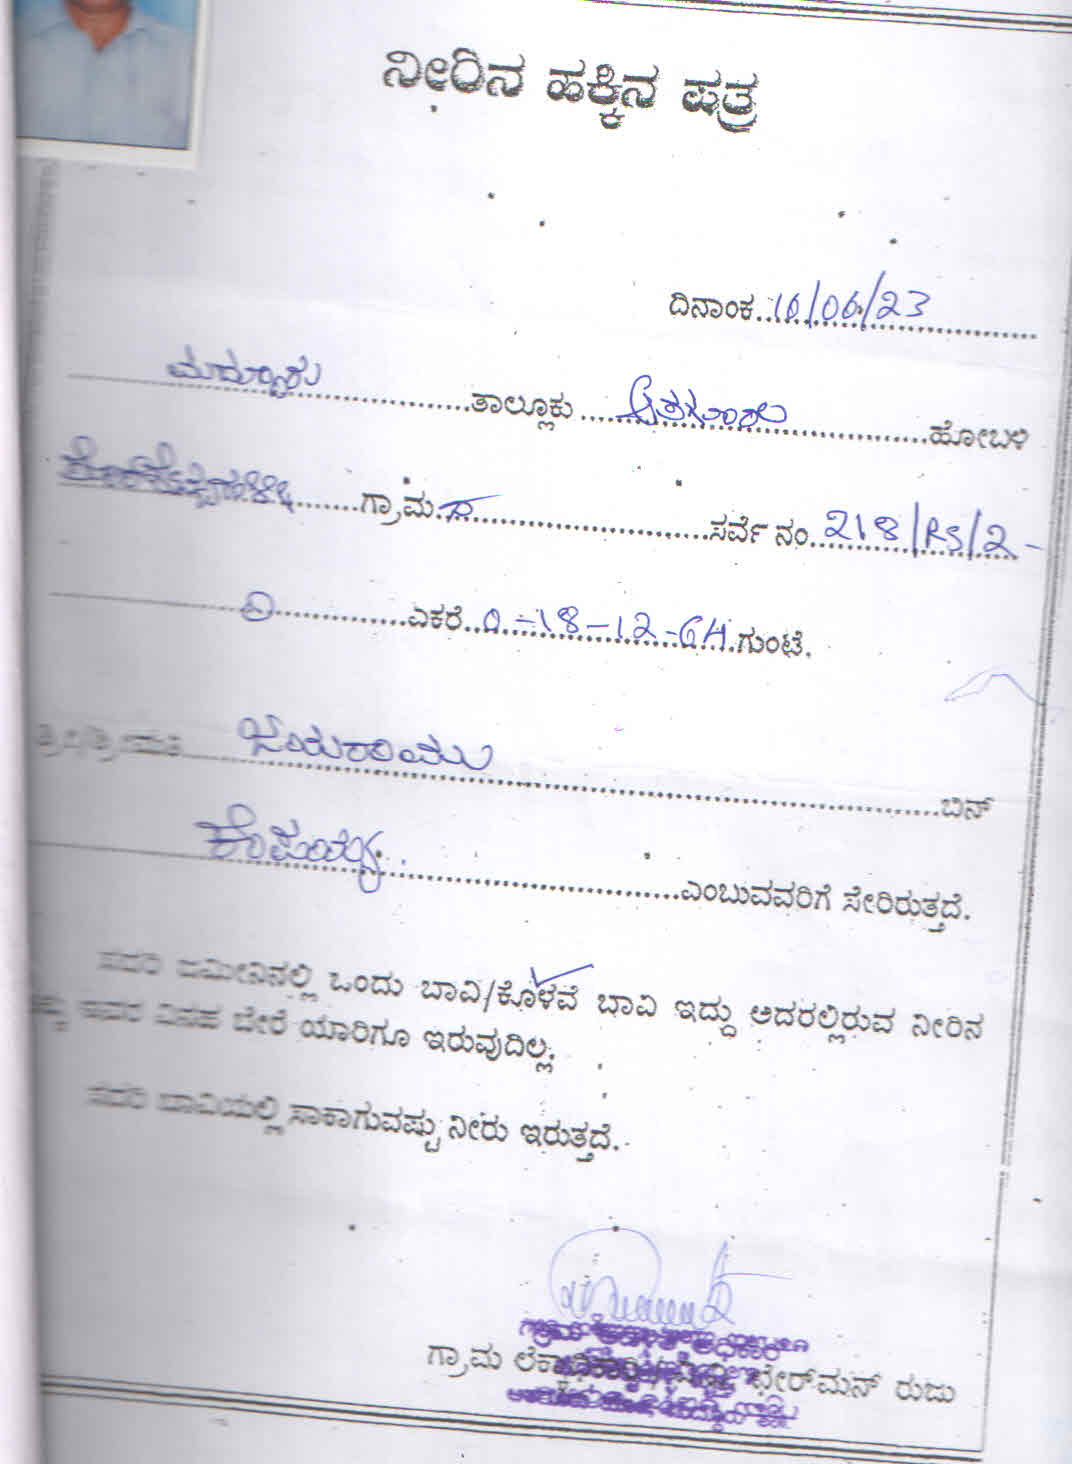 ನೀರಿನ ಹಕ್ಕಿನ ಪತ್ರ
ದಿನಾಂಕ 16/06/23
ಮದ್ದೂರು ತಾಲ್ಲೂಕು ಆತಗೂರು ಹೋಬಳಿ
ಗ್ರಾಮದ ಸರ್ವೆ ನಂ. 218/RS/2-
ಎಕರೆ 0-18-12-GH ಗುಂಟೆ.
ಶ್ರೀ/ಶ್ರೀಮತಿ ಜಯರಾಮು ಬಿನ್
ಎಂಬುವವರಿಗೆ ಸೇರಿರುತ್ತದೆ.
ಸದರಿ ಜಮೀನಿನಲ್ಲಿ ಒಂದು ಬಾವಿ/ಕೊಳವೆ ಬಾವಿ ಇದ್ದು ಅದರಲ್ಲಿರುವ ನೀರಿನ
ಹಕ್ಕು ಇವರ ವಿನಹ ಬೇರೆ ಯಾರಿಗೂ ಇರುವುದಿಲ್ಲ.
ಸದರಿ ಬಾವಿಯಲ್ಲಿ ಸಾಕಾಗುವಷ್ಟು ನೀರು ಇರುತ್ತದೆ.
ಗ್ರಾಮ ಲೆಕ್ಕಾಧಿಕಾರಿ ಛೇರ್‌ಮನ್ ರುಜು